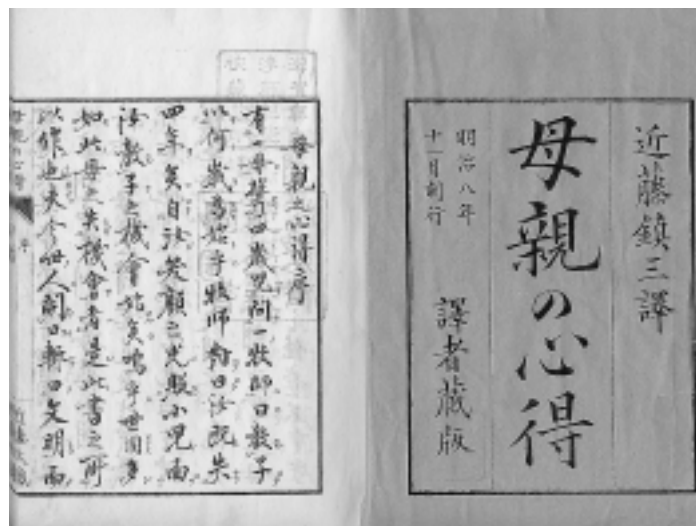 近藤鎮三譯
母親の心得
明治八年
十一月刻行
譯者藏版
母親之心得序
有一母攜四歳児問一牧師曰教子
以何歳為始乎牧師對曰汝既失
四年矣自汝笑顔之光照小児面
汝教子之機會始矣嗚乎世間多
如此母之失機會者是此書之所
以作也夫今世人開口輙曰文明而